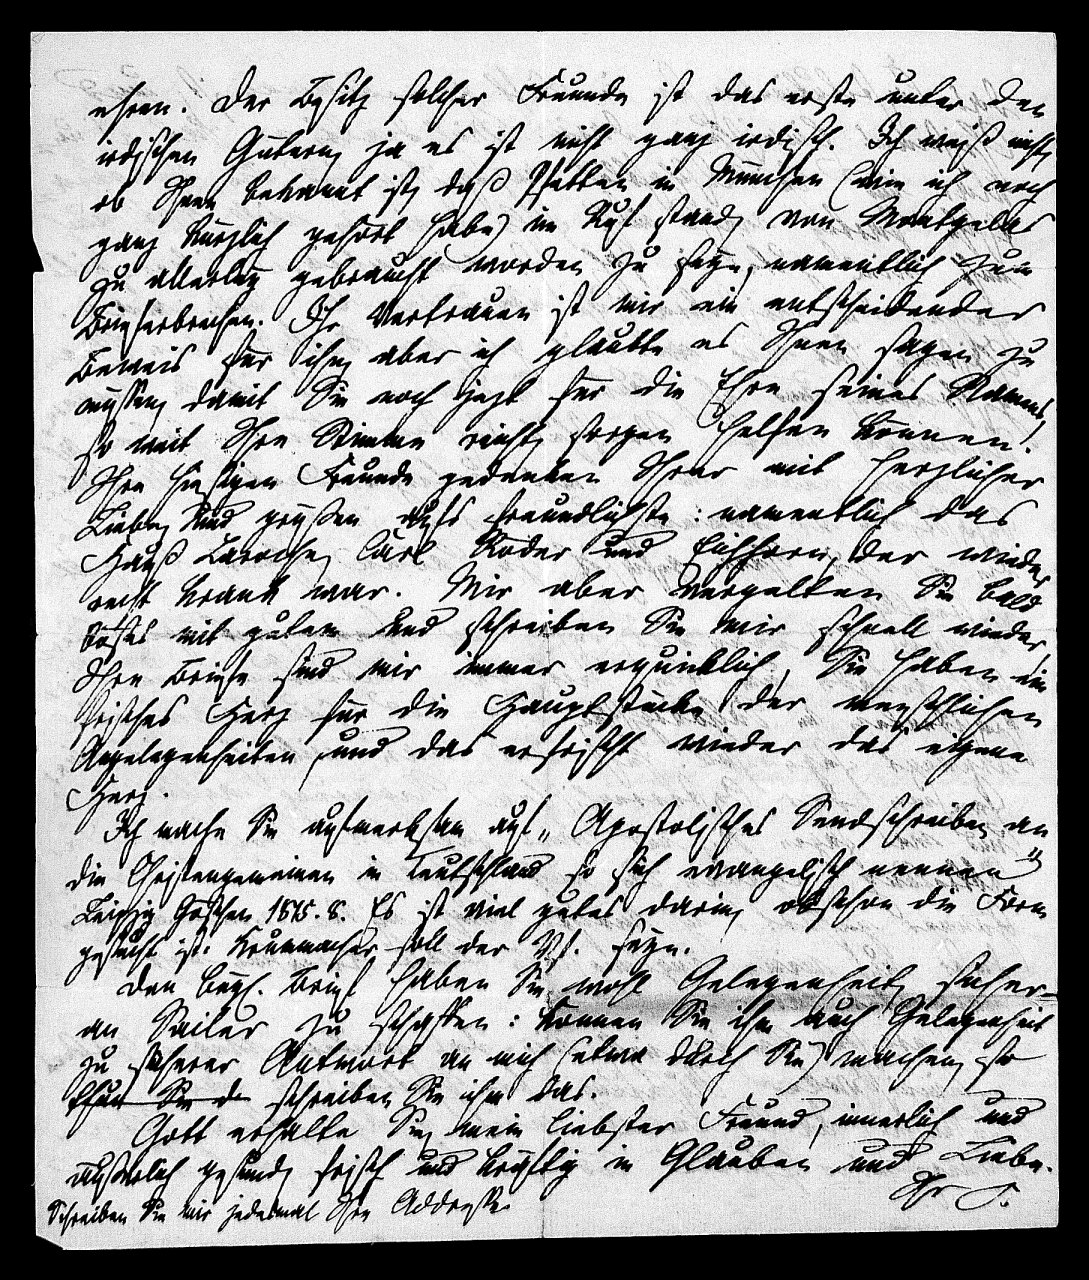 ehren. Der Besitz solcher Freunde ist das erste unter den
irdischen Gütern, ja es ist nicht ganz irdisch. Ich weiß nicht,
ob Ihnen bekannt ist, daß Pfetten in München (wie ich noch
ganz kürzlich gehört habe) im Ruf stand, von Montgelas
zu allerley gebraucht worden zu seyn, namentlich zum
Brieferbrechen. Ihr Vertrauen ist mir ein entscheidender
Beweis für ihn, aber ich glaubte es Ihnen sagen zu
müssen, damit Sie noch jezt für die Ehre seines Namens,
so weit Ihre Stimme reicht, sorgen helfen können.
Ihre hiesigen Freunde gedenken Ihrer mit herzlicher
Liebe, und grüßen aufs freundlichste: namentlich das
Hauß Laroche, Carl Roder und Eichhorn, der wieder
recht krank war. Mir aber vergelten Sie bald
böses mit gutem und schreiben Sie mir schnell wieder,
Ihre Briefe sind mir immer erquicklich, Sie haben ein
frisches Herz für die Hauptstücke der menschlichen
Angelegenheiten, und das erfrischt wieder das eigene
Herz.
Ich mache Sie aufmerksam auf „Apostolisches Sendschreiben an
die Christengemeinen in Teutschland so sich evangelisch nennen"
Leipzig Göschen 1815. 8. Es ist viel gutes darin, obschon die Form
gesucht ist. Krummacher soll der Vf. seyn.
Den beyl. Brief haben Sie wohl Gelegenheit, sicher
an Sailer zu schaffen: können Sie ihm auch Gelegenheit
zu sicherer Antwort an mich (etwa durch Sie) machen, so
thun Sie d schreiben Sie ihm das.
Gott erhalte Sie, mein liebster Freund, innerlich und
äußerlich gesund, frisch und kräftig in Glauben und Liebe.
Ihr S.
Schreiben Sie mir jedesmal Ihre Addresse